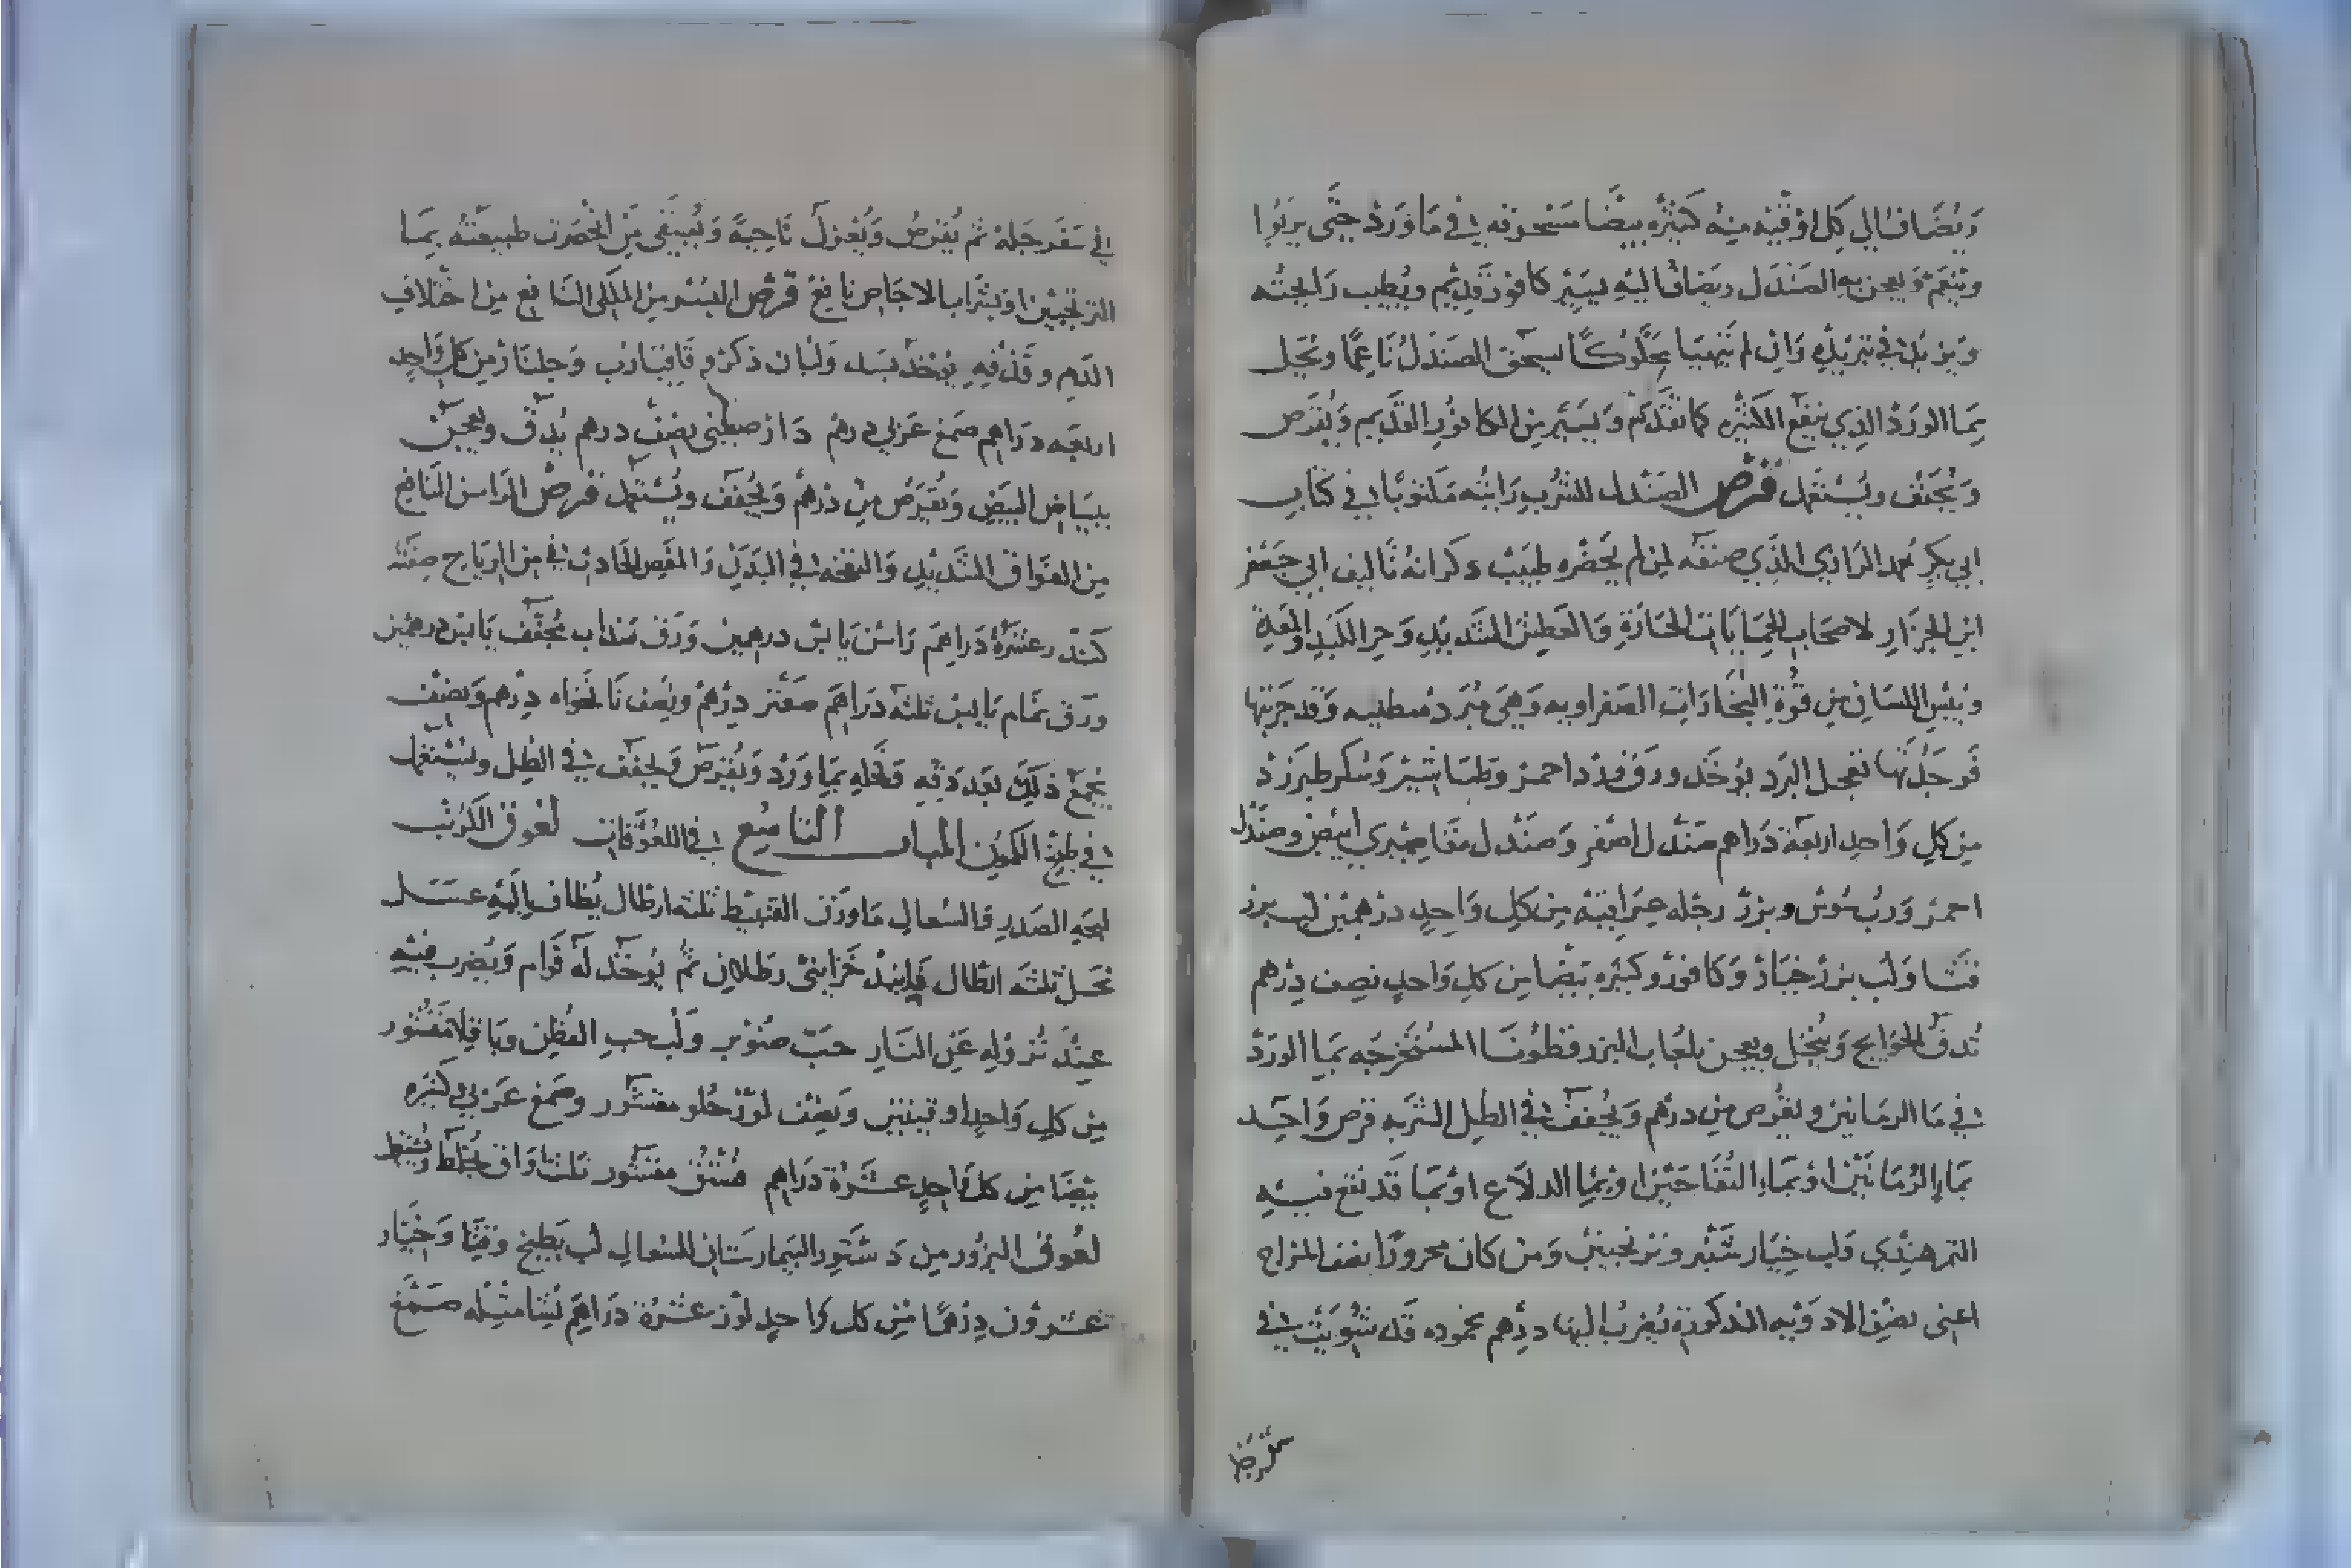 ويضاف الى كل اوقيه منه كثيره بيضا مسحوقه في ما ورد حتى يربوا
وينعم ويعجن به الصندل ويضاف اليه يسير كافور قديم ويطيب رائحته
ويزيد في تبريده وان لم تتهيا محلوكا سحق الصندل ناعما ونخل
بما الورد الذي نقع الكثيره كما تقدم ويسير من الكافور القديم ويقرص
ويجفف ويستعمل قرص الصندل للشرب رايته مكتوبا في كتاب
ابي بكر محمد الرازي الذي صنفه لمن لم يحضره طبيب وكر انه تاليف ابي جعفر
ابن الجزار لاصحاب الحمايات الحارة والعطش الشديد وحر الكبد والمعدة
ويبس اللسان من قوة البخارات الصفراويه وهي مبرد مطفيه وقد جربتها
فوجدتها تفعل البرد يوخذ ورق ورد احمر وطباشير وسكر طبرزد
من كل واحد اربعة دراهم صندل اصفر وصندل مقاصيري ابيض وصندل
احمر ورب سوس وبزر رجله عراقيه من كل واحد درهمين لب بزر
قثا ولب بزر خيار وكافور وكثيره بيضا من كل واحد نصف درهم
تدق الحوايج وينخل ويعجن بلعاب البزر قطونا المستخرجه بما الورد
في ما الرمانين ويقرص من درهم ويجفف في الظل الشربه قرص واحد
بماء الرمانين او بماء التفاحين او بما الدلاع او بما قد نقع فيه
التمر هندي ولب خيار شنبر وترنجبين ومن كان محرورا يقف المزاج
اعني نصف الادويه المذكورة يضرب اليها درهم محموده قد شويت في
في سفرجله ثم يقرص ويعزل ناحية ويسقى من انحصرت طبيعته بما
الترنجبين او بشراب الاجاص نافع قرص البسد من الملكي النافع من اختلاف
الدم وقذفه يوخذ بسد ولبان ذكر و قاقيا رب وجلنار من كل واحد
اربعه دراهم صمغ عربي درهم دارصيني نصف درهم يدق ويعجن
ببياض البيض ويقرص من درهم ويجفف ويستعمل قرص الراسن النافع
من الفواق الشديد والنفخه في البدن والمغص الحادث من الرياح صفته
كندر عشرة دراهم راسن يابس درهمين ورق سداب مجفف يابس درهمين
ورق نمام يابس ثلثه دراهم صعتر درهم ونصف نانخواه درهم ونصف
يجمع ذلك بعد دقه ونخله بما ورد ويقرص ويجفف في الظل ويستعمل
في طبيخ الكمون الباب التاسع في اللعوقات لعوق الكرنب
لبحه الصدر والسعال ما ورق القنبيط ثلثه ارطال يظاف اليه عسل
نحل ثلثه ارطال فانيد خزايني رطلان ثم يوخذ له قوام ويضرب فيه
عند نزوله عن النار حب صنوبر ولب حب القطن وباقلا مقشور
من كل واحد اوقيتين ونصف لوز حلو مقشور وصمغ عربي كثيره
بيضا من كل واحد عشرة دراهم فستق مقشور ثلث اواق يخلط
لعوق البزور من دستور البيمارستان للسعال لب بطيخ وقثا وخيار
عشرون درهما من كل واحد لوز عشرة دراهم نشا مثله صمغ